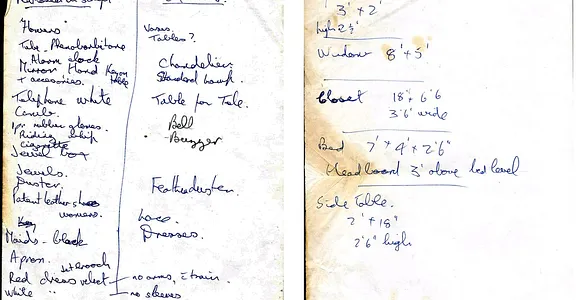 "Flowers"
Tube. Phenobarbitone
Alarm clock
Mirror Hand
accessories. table
Telephone white
Candle.
1 pr. rubber gloves.
Riding whip
Cigarette
Jewel box
Jewels.
Duster.
Patent leather shoes
womens.
Maids - black
Apron.
Red dress velvet
white " "
no arms, train.
no sleeves
Vases.
Tables?
Chandelier.
Standard lamp.
Table for Tele.
Bell
Buzzer
Featherduster.
Lace.
Dresses.
3' × 2'
high 2½'
Window 8' + 5'
Closet 18" + 6'6
3'6" wide
Bed 7' × 4' × 2'6"
Headboard 3' above bed level
Side Table.
2' + 18"
2'6" high